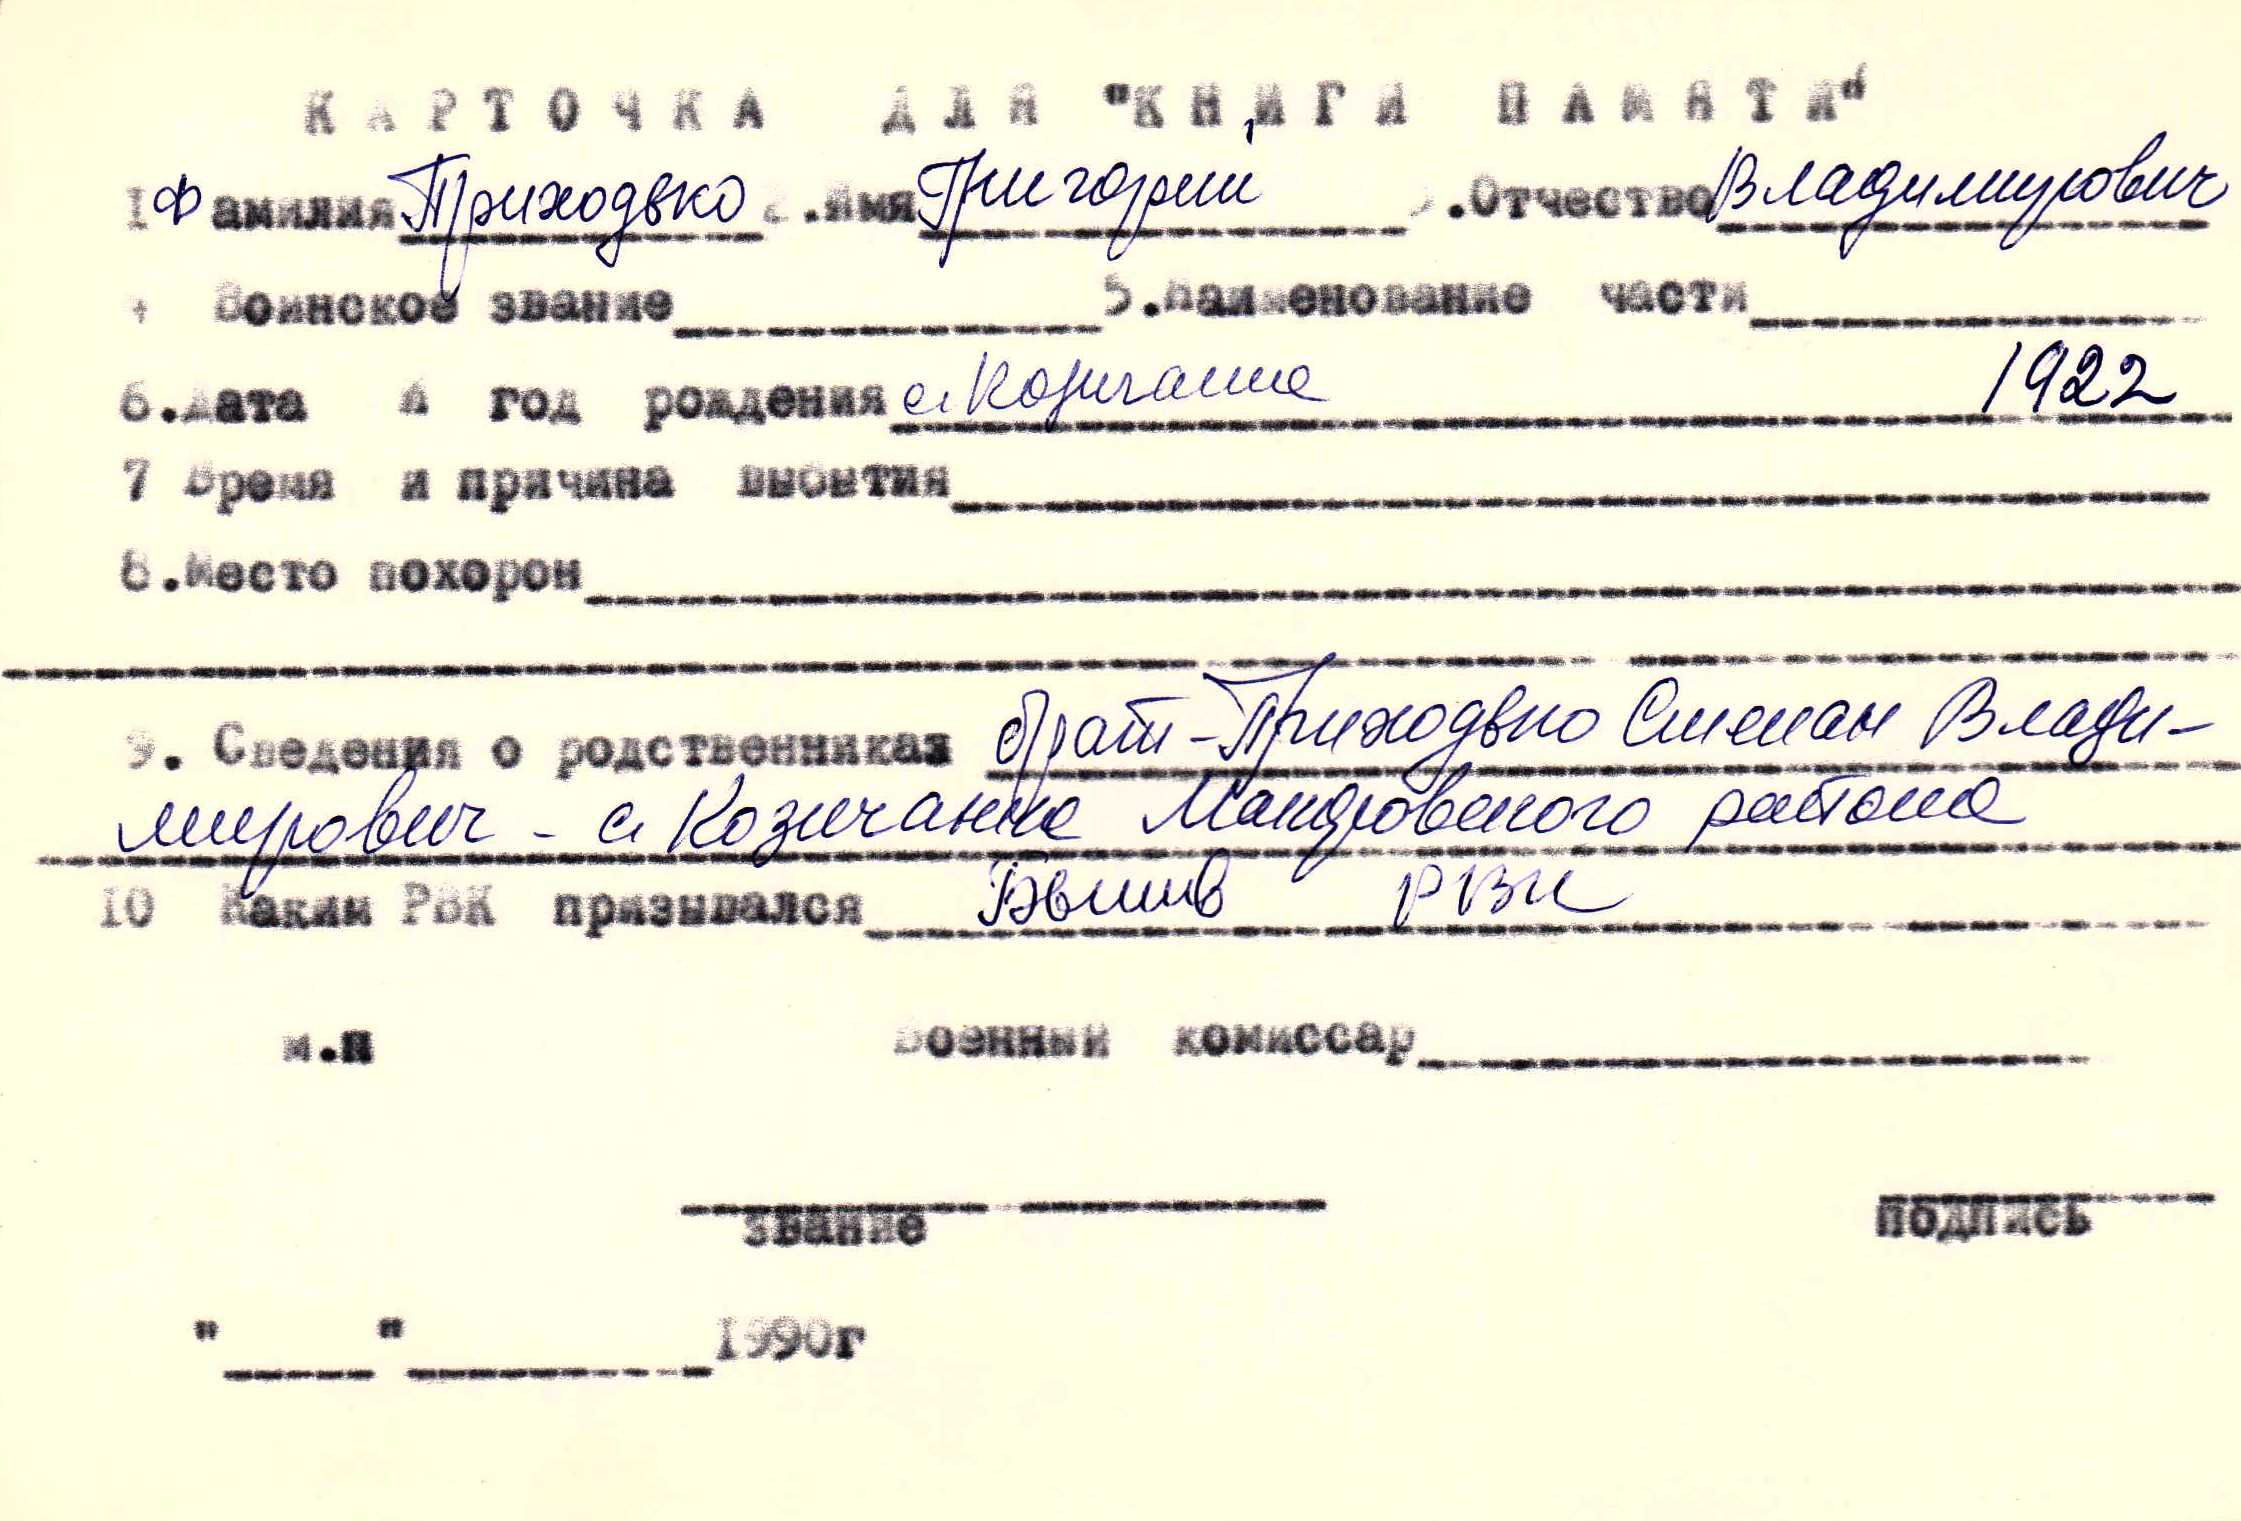 КАРТОЧКА ДЛЯ "КНИГИ ПАМЯТИ"
1 Фамилия Приходько 2.Имя Григорий 3.Отчество Владимирович
4 Воинское звание 5.Наименование части
6.Дата и год рождения с. Козичанка 1922
7 Время и причина выбытия
8.Место похорон
9. Сведения о родственниках брат-Приходько Степан Влади-
мирович - с. Козичанка Макаровского района
10 Каким РВК призывался Бышив РВК
м.п Военный комиссар
звание подпись
" " 1990г